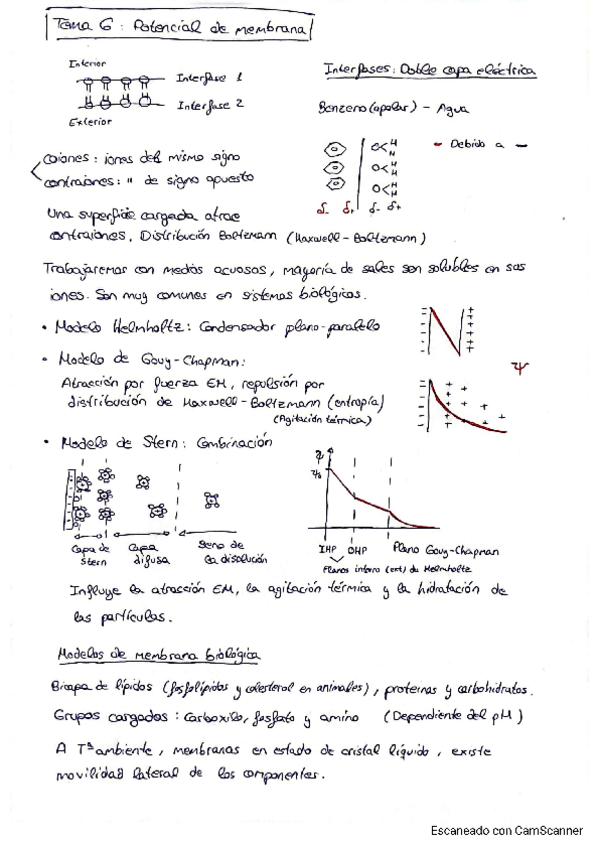 Tema 6: Potencial de membrana
Interior
Interfase 1
Interfase 2
Exterior
Interfases: Doble capa eléctrica
Benzeno (apolar) - Agua
- Debido a -
H
O<
H
O<
H
O<
δ- δ+ δ- δ+
Coiones: iones del mismo signo
contraiones: " de signo opuesto
Una superficie cargada atrae
contraiones. Distribución Boltzmann (Maxwell-Boltzmann)
Trabajaremos con medios acuosos, mayoría de sales son solubles en sus
iones. Son muy comunes en sistemas biológicos.
• Modelo Helmholtz: Condensador plano-paralelo
• Modelo de Gouy-Chapman:
Atracción por fuerza EM, repulsión por
distribución de Maxwell-Boltzmann (entropía)
(Agitación térmica)
Ψ
• Modelo de Stern: Combinación
Capa de
Stern
Capa
difusa
Seno de
la disolución
Ψ
Ψ₀
IHP OHP Plano Gouy-Chapman
Planos interno (ext) de Helmholtz
Influye la atracción EM, la agitación térmica y la hidratación de
las partículas.
Modelos de membrana biológica
Bicapa de lípidos (fosfolípidos y colesterol en animales), proteínas y carbohidratos.
Grupos cargados: carboxilo, fosfato y amino (Dependiente del pH)
A Tª ambiente, membranas en estado de cristal líquido, existe
movilidad lateral de los componentes.
Escaneado con CamScanner